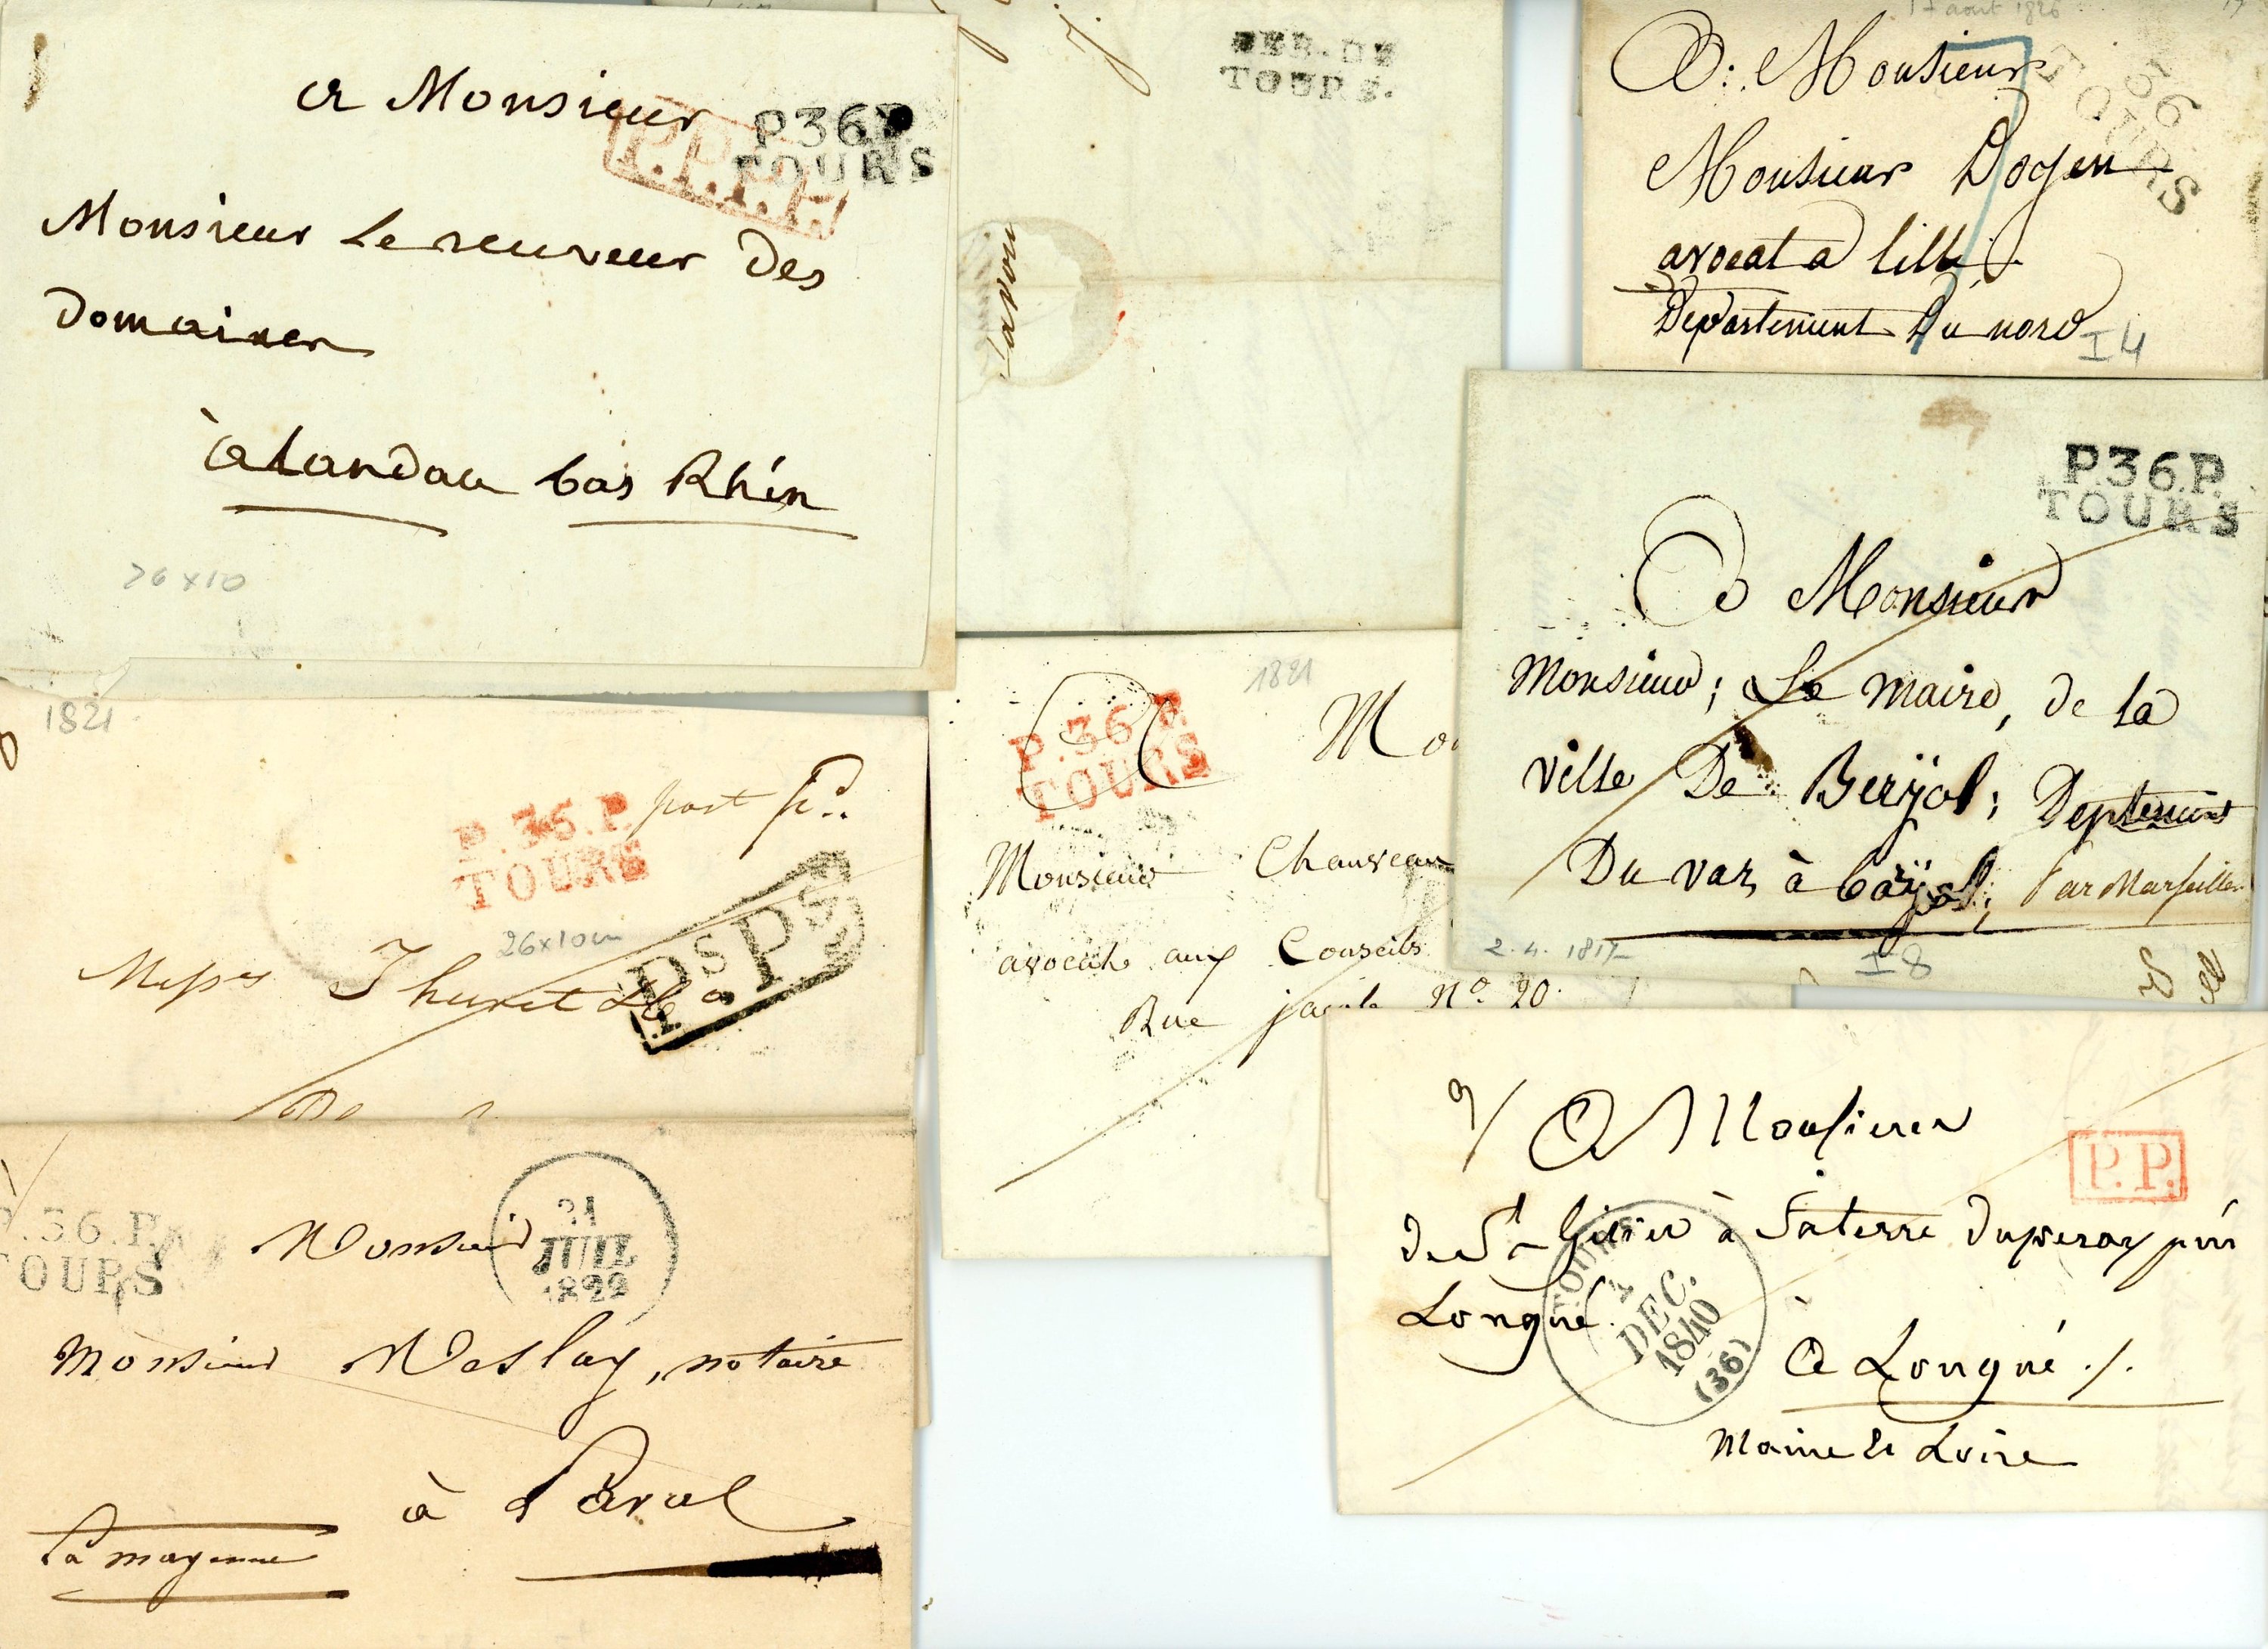 a Monsieur
P.P.P.P.
P36P
TOURS
Monsieur Le receveur Des
Domaines
à Landau bas Rhin
26x10
DEB. DE
TOURS.
17 aout 1826
A: Monsieur
36
TOURS
Monsieur Doyen
avocat a lille
Departement Du nord
7
I4
P.36.P.
TOURS
A Monsieur
Monsieur; Le maire, de la
ville De Berjol;
Du var, à
Par Marseille
2.4.1817
I8
1821
P.36.P.
TOURS
port pé..
26x10cm
Messrs Thuret & Co
PsPs
1821
P.36.P.
TOURS
Monsieur Chauveau
avocat aux Conseils
Rue jacob No. 20.
P.36.P.
TOURS
Monsieur
31
JUIL
1829
Monsieur Meslay, notaire
à Laval
La mayenne
A Monsieur
P.P.
Longué.
TOURS
1
DEC.
1840
(36)
A Longué ./.
Maine & Loire